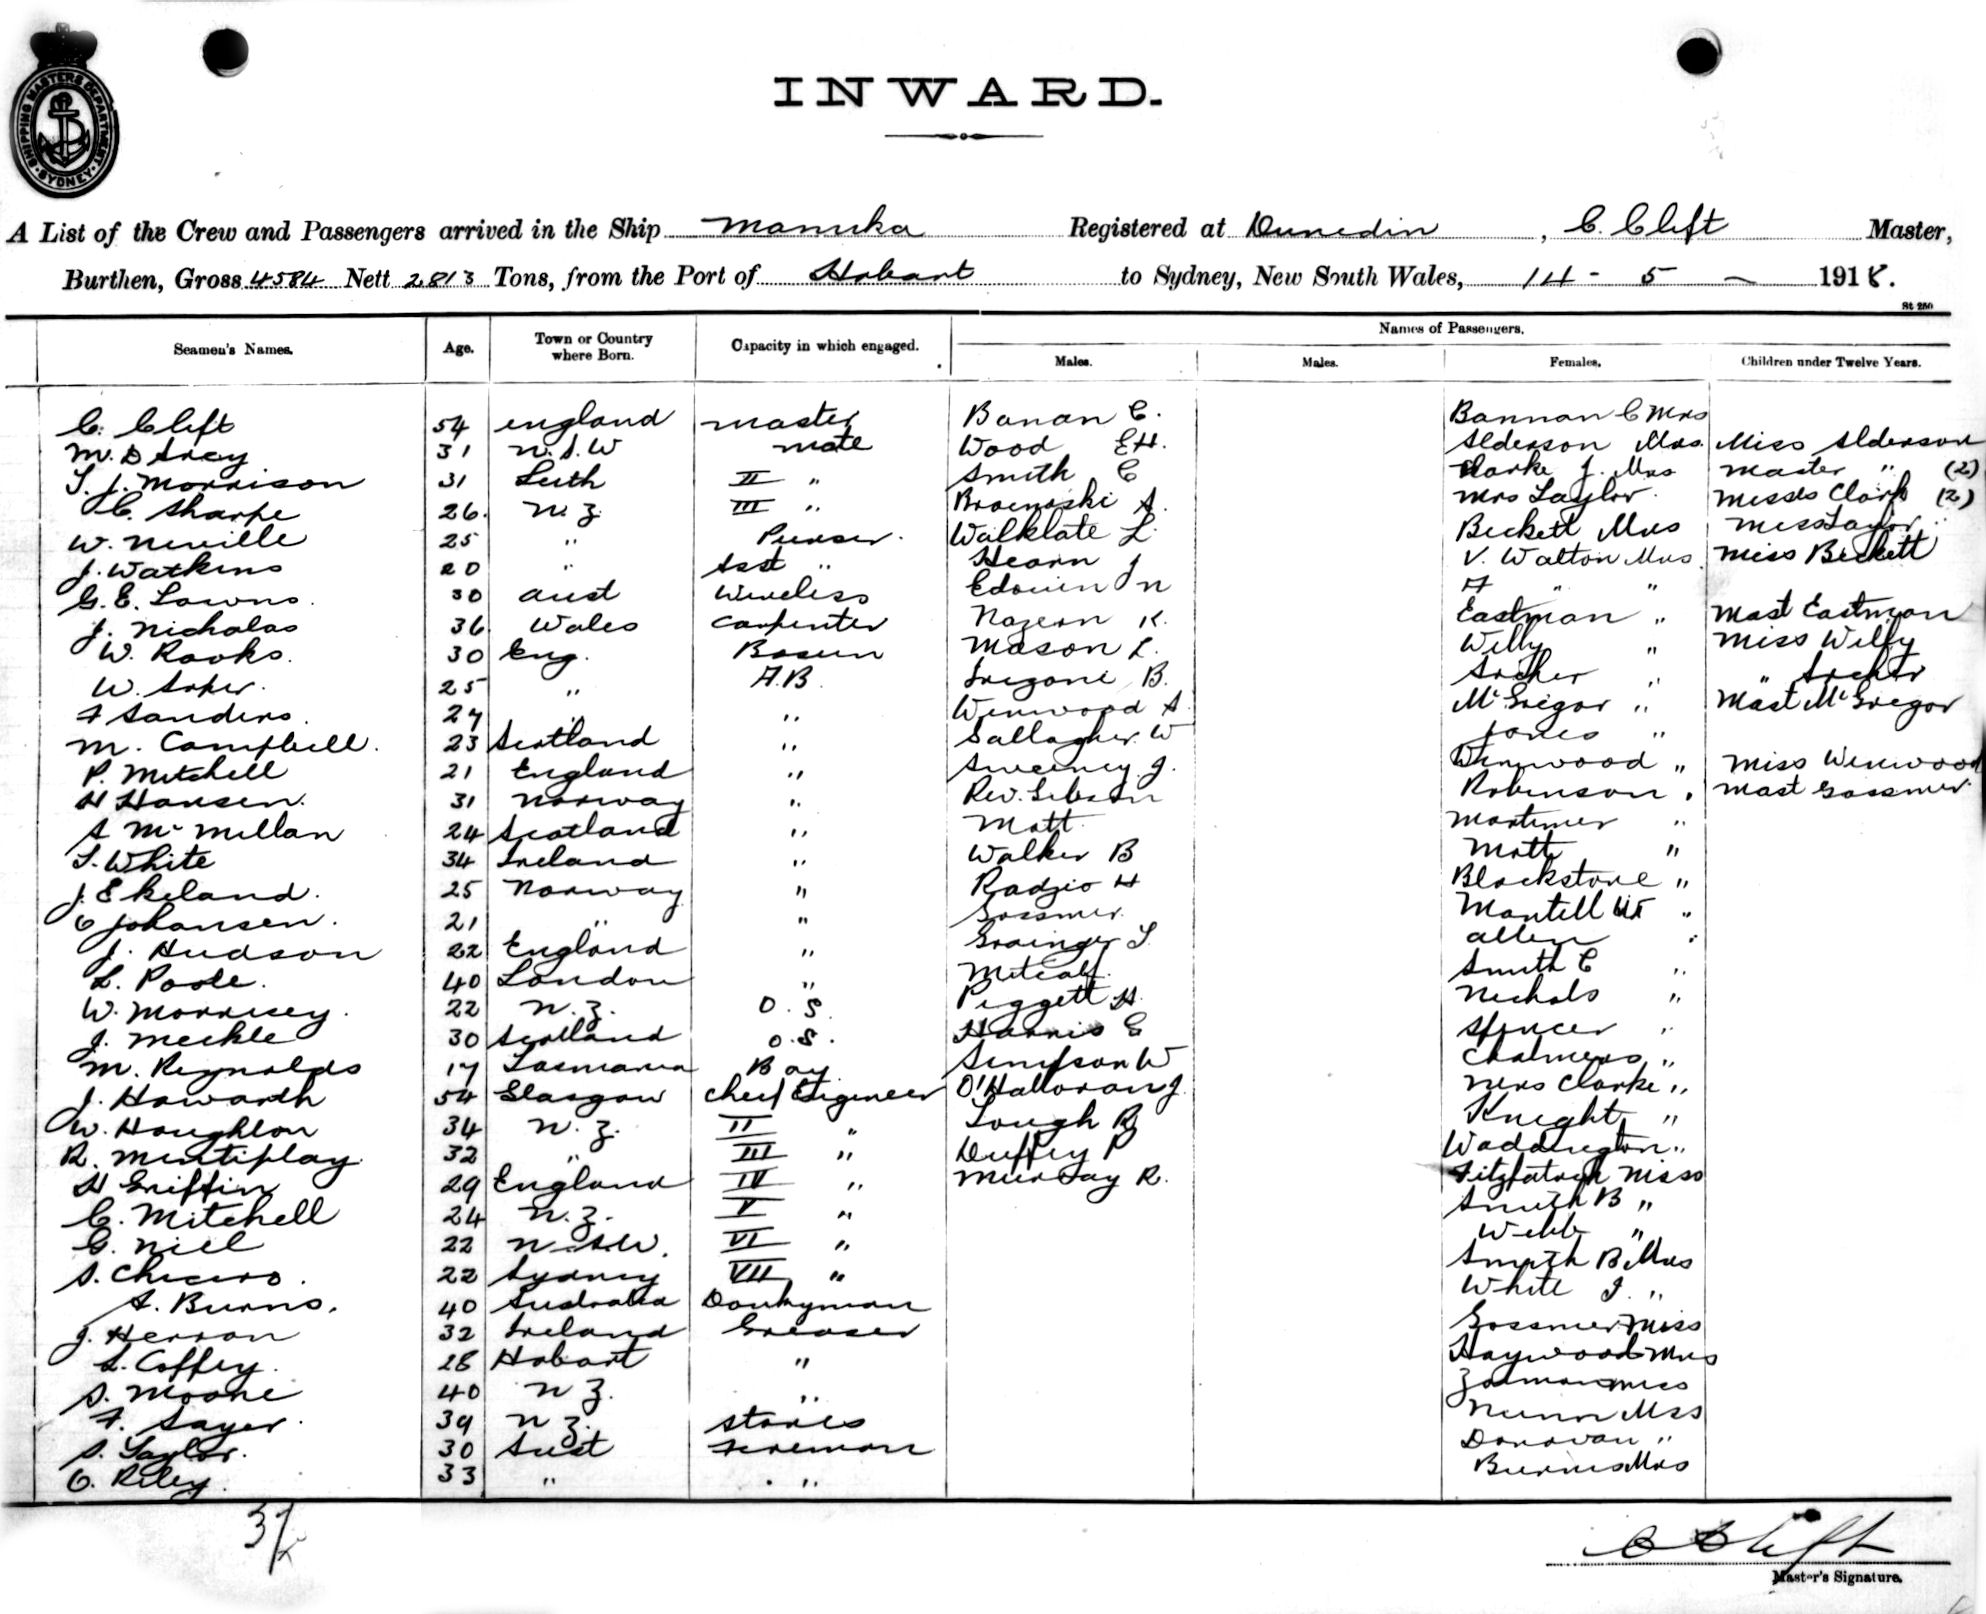 SHIPPING MASTERS DEPARTMENT
SYDNEY
INWARD.
A List of the Crew and Passengers arrived in the Ship Manuka Registered at Dunedin, C. Clift Master,
Burthen, Gross 4584 Nett 2813 Tons, from the Port of Hobart to Sydney, New South Wales, 14 - 5 - 1918.
St 250
Names of Passengers.
Seamen's Names. Age. Town or Country where Born. Capacity in which engaged. Males. Males. Females. Children under Twelve Years.
C. Clift 54 England master Banan C. Bannan C Mrs
M. D Arcy 31 N.S.W mate Wood EH. Alderson Mrs. Miss Alderson
T. J. Morrison 31 Leith II " Smith C Clarke J. Mrs Master " (2)
C. Sharpe 26. N.Z. III " A. Mrs Taylor. Misses Clark (2)
W. Neville 25 " Purser. Walklate L. Beckett Mrs Miss Taylor
J. Watkins 20 " Asst " Hearn J V. Walton Mrs. Miss Beckett
G. E. Lowns. 30 Aust Wireless Edouin N " "
J. Nicholas 36 Wales Carpenter K. Eastman " Mast Eastman
W. Rooks. 30 Eng. Bosun Mason L. Willy " Miss Willy
W. 25 " A.B. B. Archer " " Archer
F Sanders. 27 " " Winwood A McGregor " Mast McGregor
M. Campbell. 23 Scotland " Gallagher W Jones "
P. Mitchell 21 England " Sweeney J. Winwood " Miss Winwood
H Hansen. 31 Norway " Rev. Gibson Robinson " Mast Gossmer
A McMillan 24 Scotland " Mott Mortimer "
T. White 34 Ireland " Walker B Mott "
J. Ekeland. 25 Norway " Radzio H Blackstone "
C Johansen. 21 " " Gossmer. Mantell "
J. Hudson 22 England " Grainger T. Allen "
L. Poole. 40 London " Metcalf. Smith C "
W. Morrisey. 22 N.Z. O.S. Piggett H. Nichols "
J. Meckle 30 Scotland O.S. Harris E Spencer "
M. Reynolds 17 Tasmania Boy Simpson W Chalmers "
J. Howarth 54 Glasgow Chief Engineer O'Halloran J. Ners Clarke "
W. Houghton 34 N.Z. II " Lough R Knight "
R. Mentiplay 32 " III " Duffey P Waddington "
H Griffin 29 England IV " Murray R. Fitzpatrick Miss
C. Mitchell 24 N.Z. V " Smith B "
G. Niel 22 N.S.W. VI " Webb "
S. Chicero. 22 Sydney VII " Smyth B. Mrs
A. Burns. 40 Australia Donkyman White J. "
J. Herron 32 Ireland Greaser Gossmer Miss
L. Coffey. 28 Hobart " Haywood Mrs
S. Moore 40 N Z. " Miss
F. Sayer. 39 N Z. Stores Nunn Mrs
S. Taylor. 30 Aust Fireman Donovan "
C. Riley. 33 " " Burns Mrs
37
C Clift
Master's Signature.